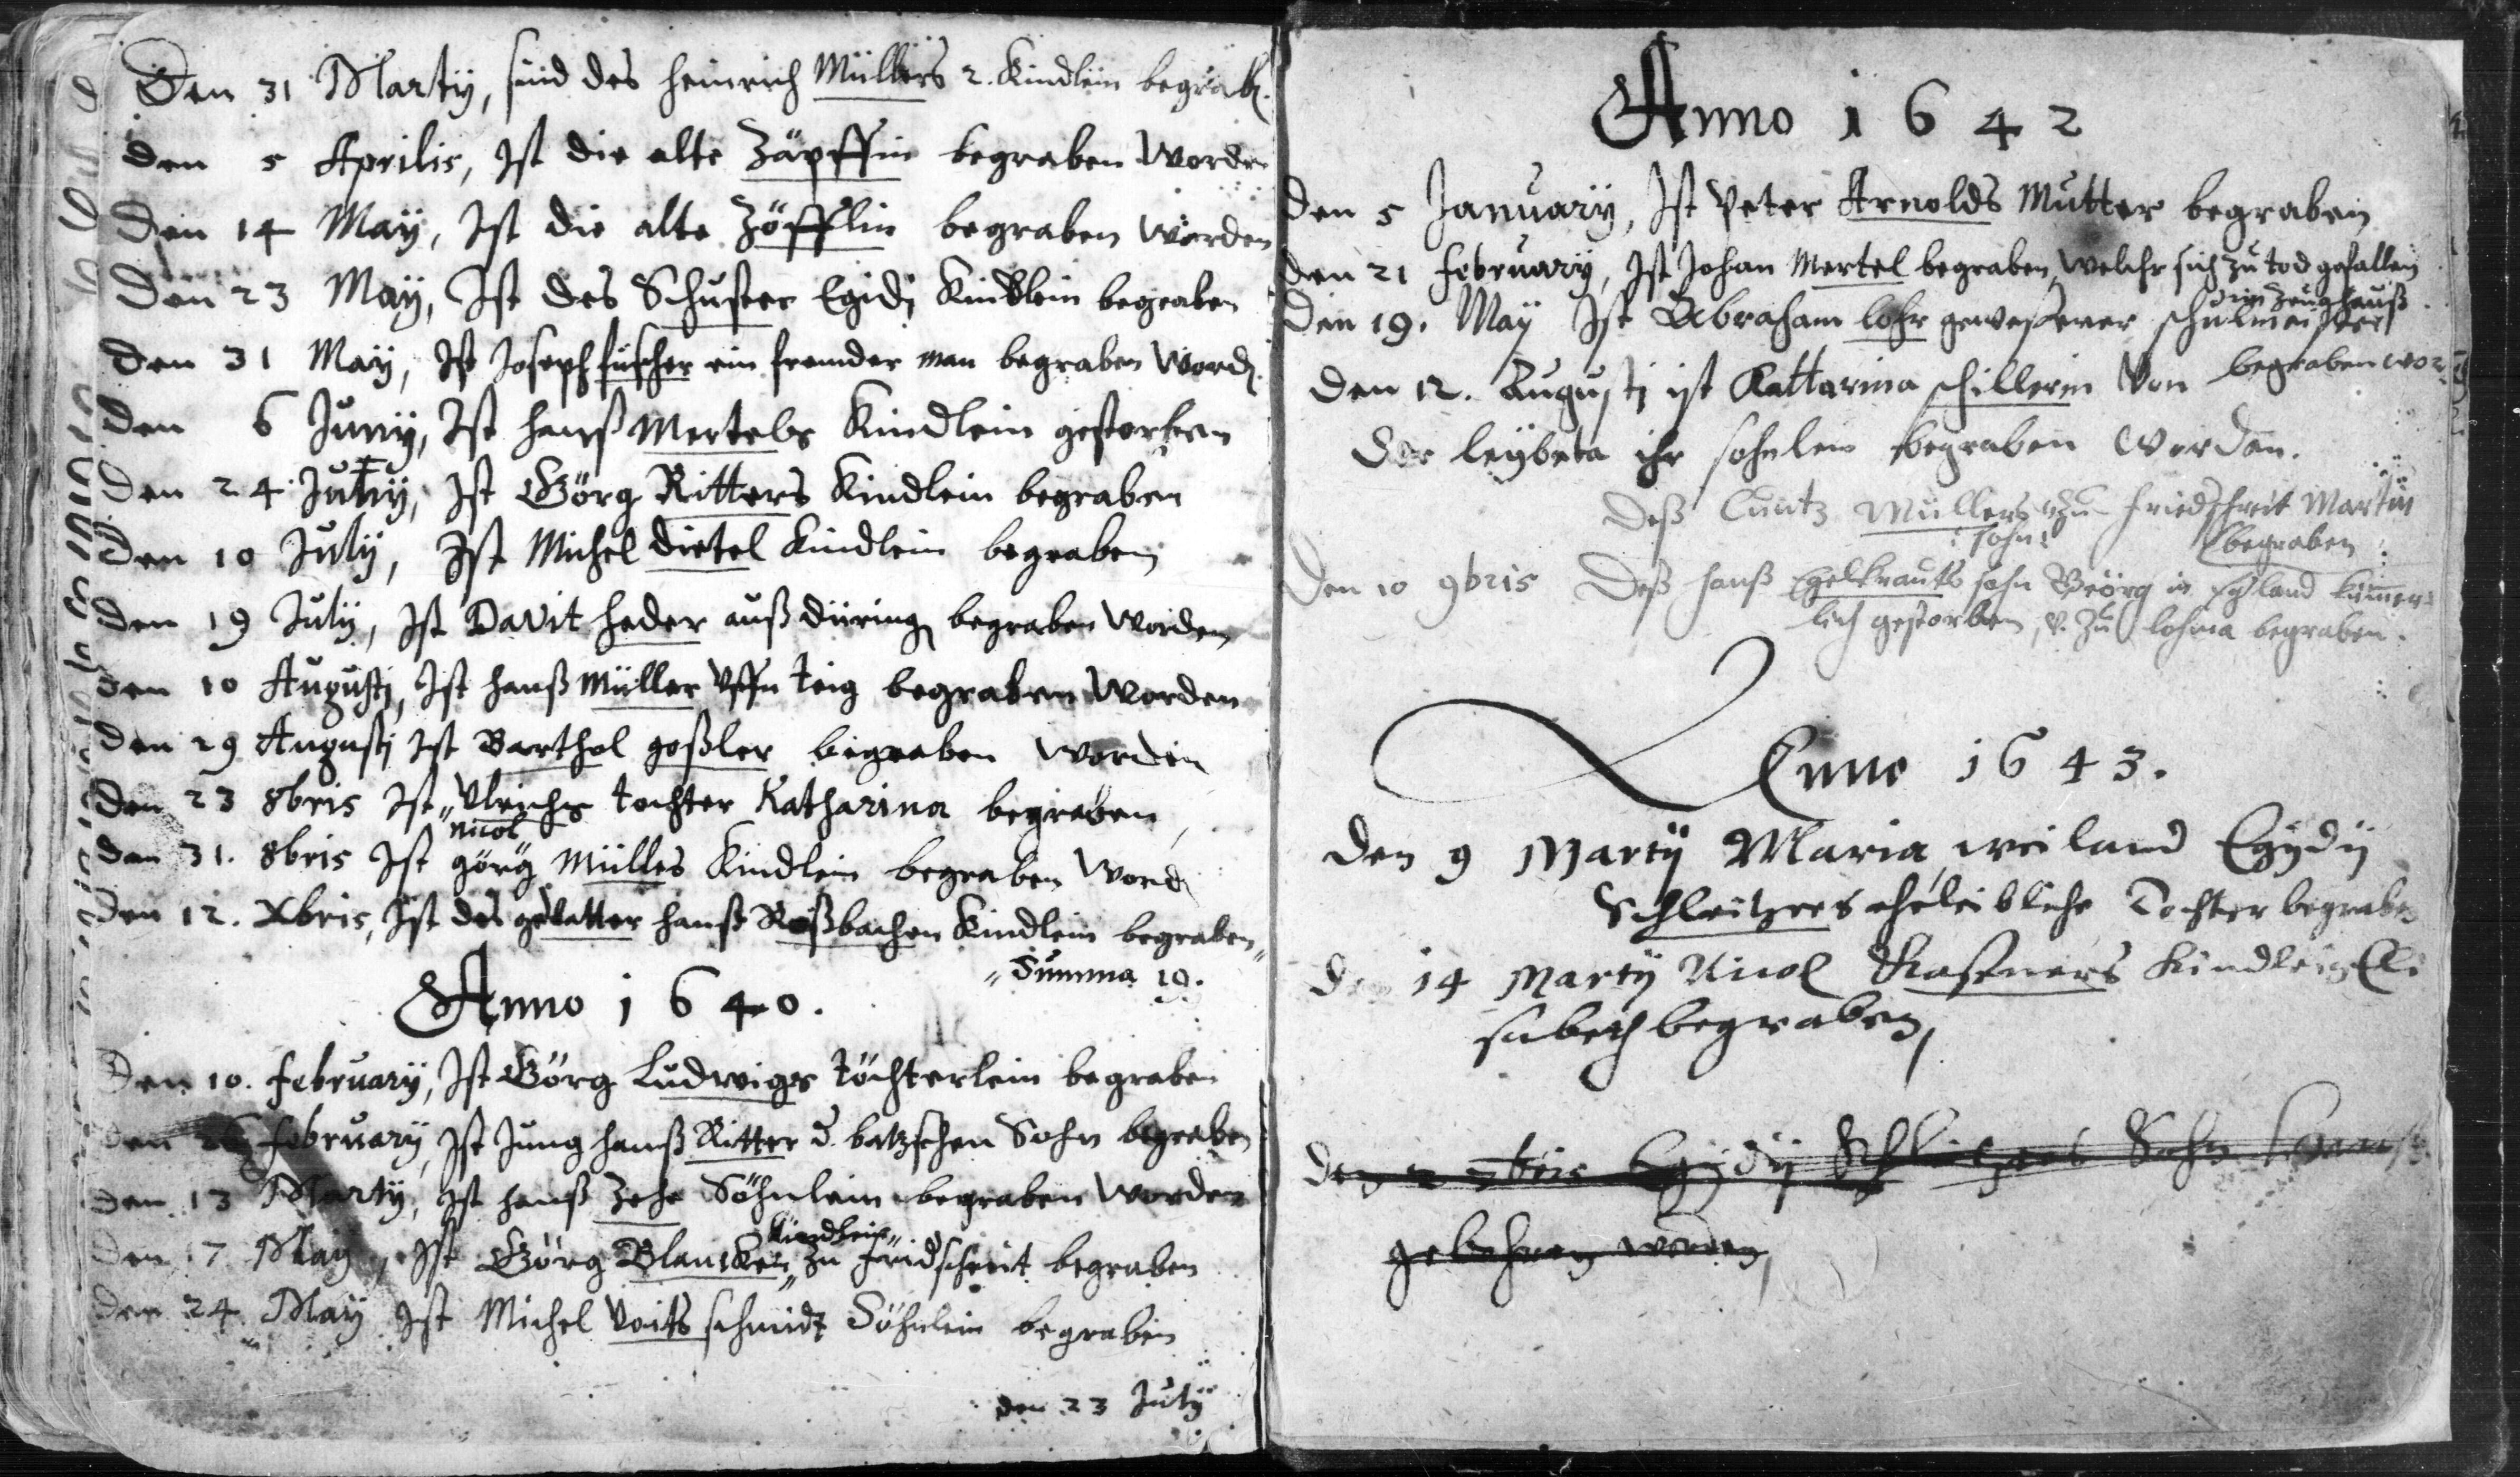 Den 31 Martÿ, sind des Heinrich Müllers 2. Kindlein begrab.
Den 5 Aprilis, Ist die alte Zäpffin begraben worden
Den 14 Maÿ, Ist die alte Zöfflin begraben worden
Den 23 Maÿ, Ist des Schuster Egidj Kindlein begraben
Den 31 Maÿ, Ist Joseph fuscher ein frembder man begraben word.
Den 6 Junÿ, Ist Hanß Mertels Kindlein gestorben
Den 24 Ist Görg Ritters Kindlein begraben
Den 10 Julÿ, Ist Michel dietel Kindlein begraben
Den 19 Julÿ, Ist Davit Heder auß düring begraben worden
Den 10 Augustj, Ist Hanß Müller vffn teig begraben worden
Den 29 Augustj Ist Barthel goßler begraben worden
Den 23 8bris Ist Vlrichs tochter Katharina begraben
Nicol
Den 31. 8bris Ist görg Mülles Kindlein begraben word
Den 12. Xbris, Ist des gevatter Hanß Roßbachen Kindlein begraben
Summa 19.
Anno 1640.
Den 10. februarÿ, Ist Görg Ludwigs töchterlein begraben
Den 26 februarÿ, Ist Jung Hanß Ritter d. Sohn begraben
Den 13 Martÿ, Ist Hanß Zehe Söhnlein begraben worden
Kindlein
Den 17 Maÿ, Ist Görg Blancken zu fridscheit begraben
Den 24 Maÿ Ist Michel Voits schmidt Söhnlein begraben
den 23 Julÿ
Anno 1642
Den 5 Januarÿ, Ist Peter Arnolds Mutter begraben
Den 21 februarÿ, Ist Johan Mertel begraben, welchr sich zu tod gefallen
Zeughauß
Den 19. Maÿ Ist Abraham lohr geweßener schulmeister
begraben wor
Den 12. Augustj ist Kattarina schillerin von
Der leybeta ihr sohnlein begraben worden.
Deß Cuntz Müllers zu friedscheit Martin
sohn begraben
Den 10 9bris Deß Hanß Egelkrauts sohn Görg in land kümmer
lich gestorben, v. zu lohma begraben.
Anno 1643.
Den 9 Martÿ Maria weiland Egÿdÿ
Schleitzers eheleibliche Tochter begraben
Den 14 Martÿ Nicol Kastners Kindlein Eli
sabeth begraben,
Den Egÿdÿ Schleitzers Sohn
gebohren worden,